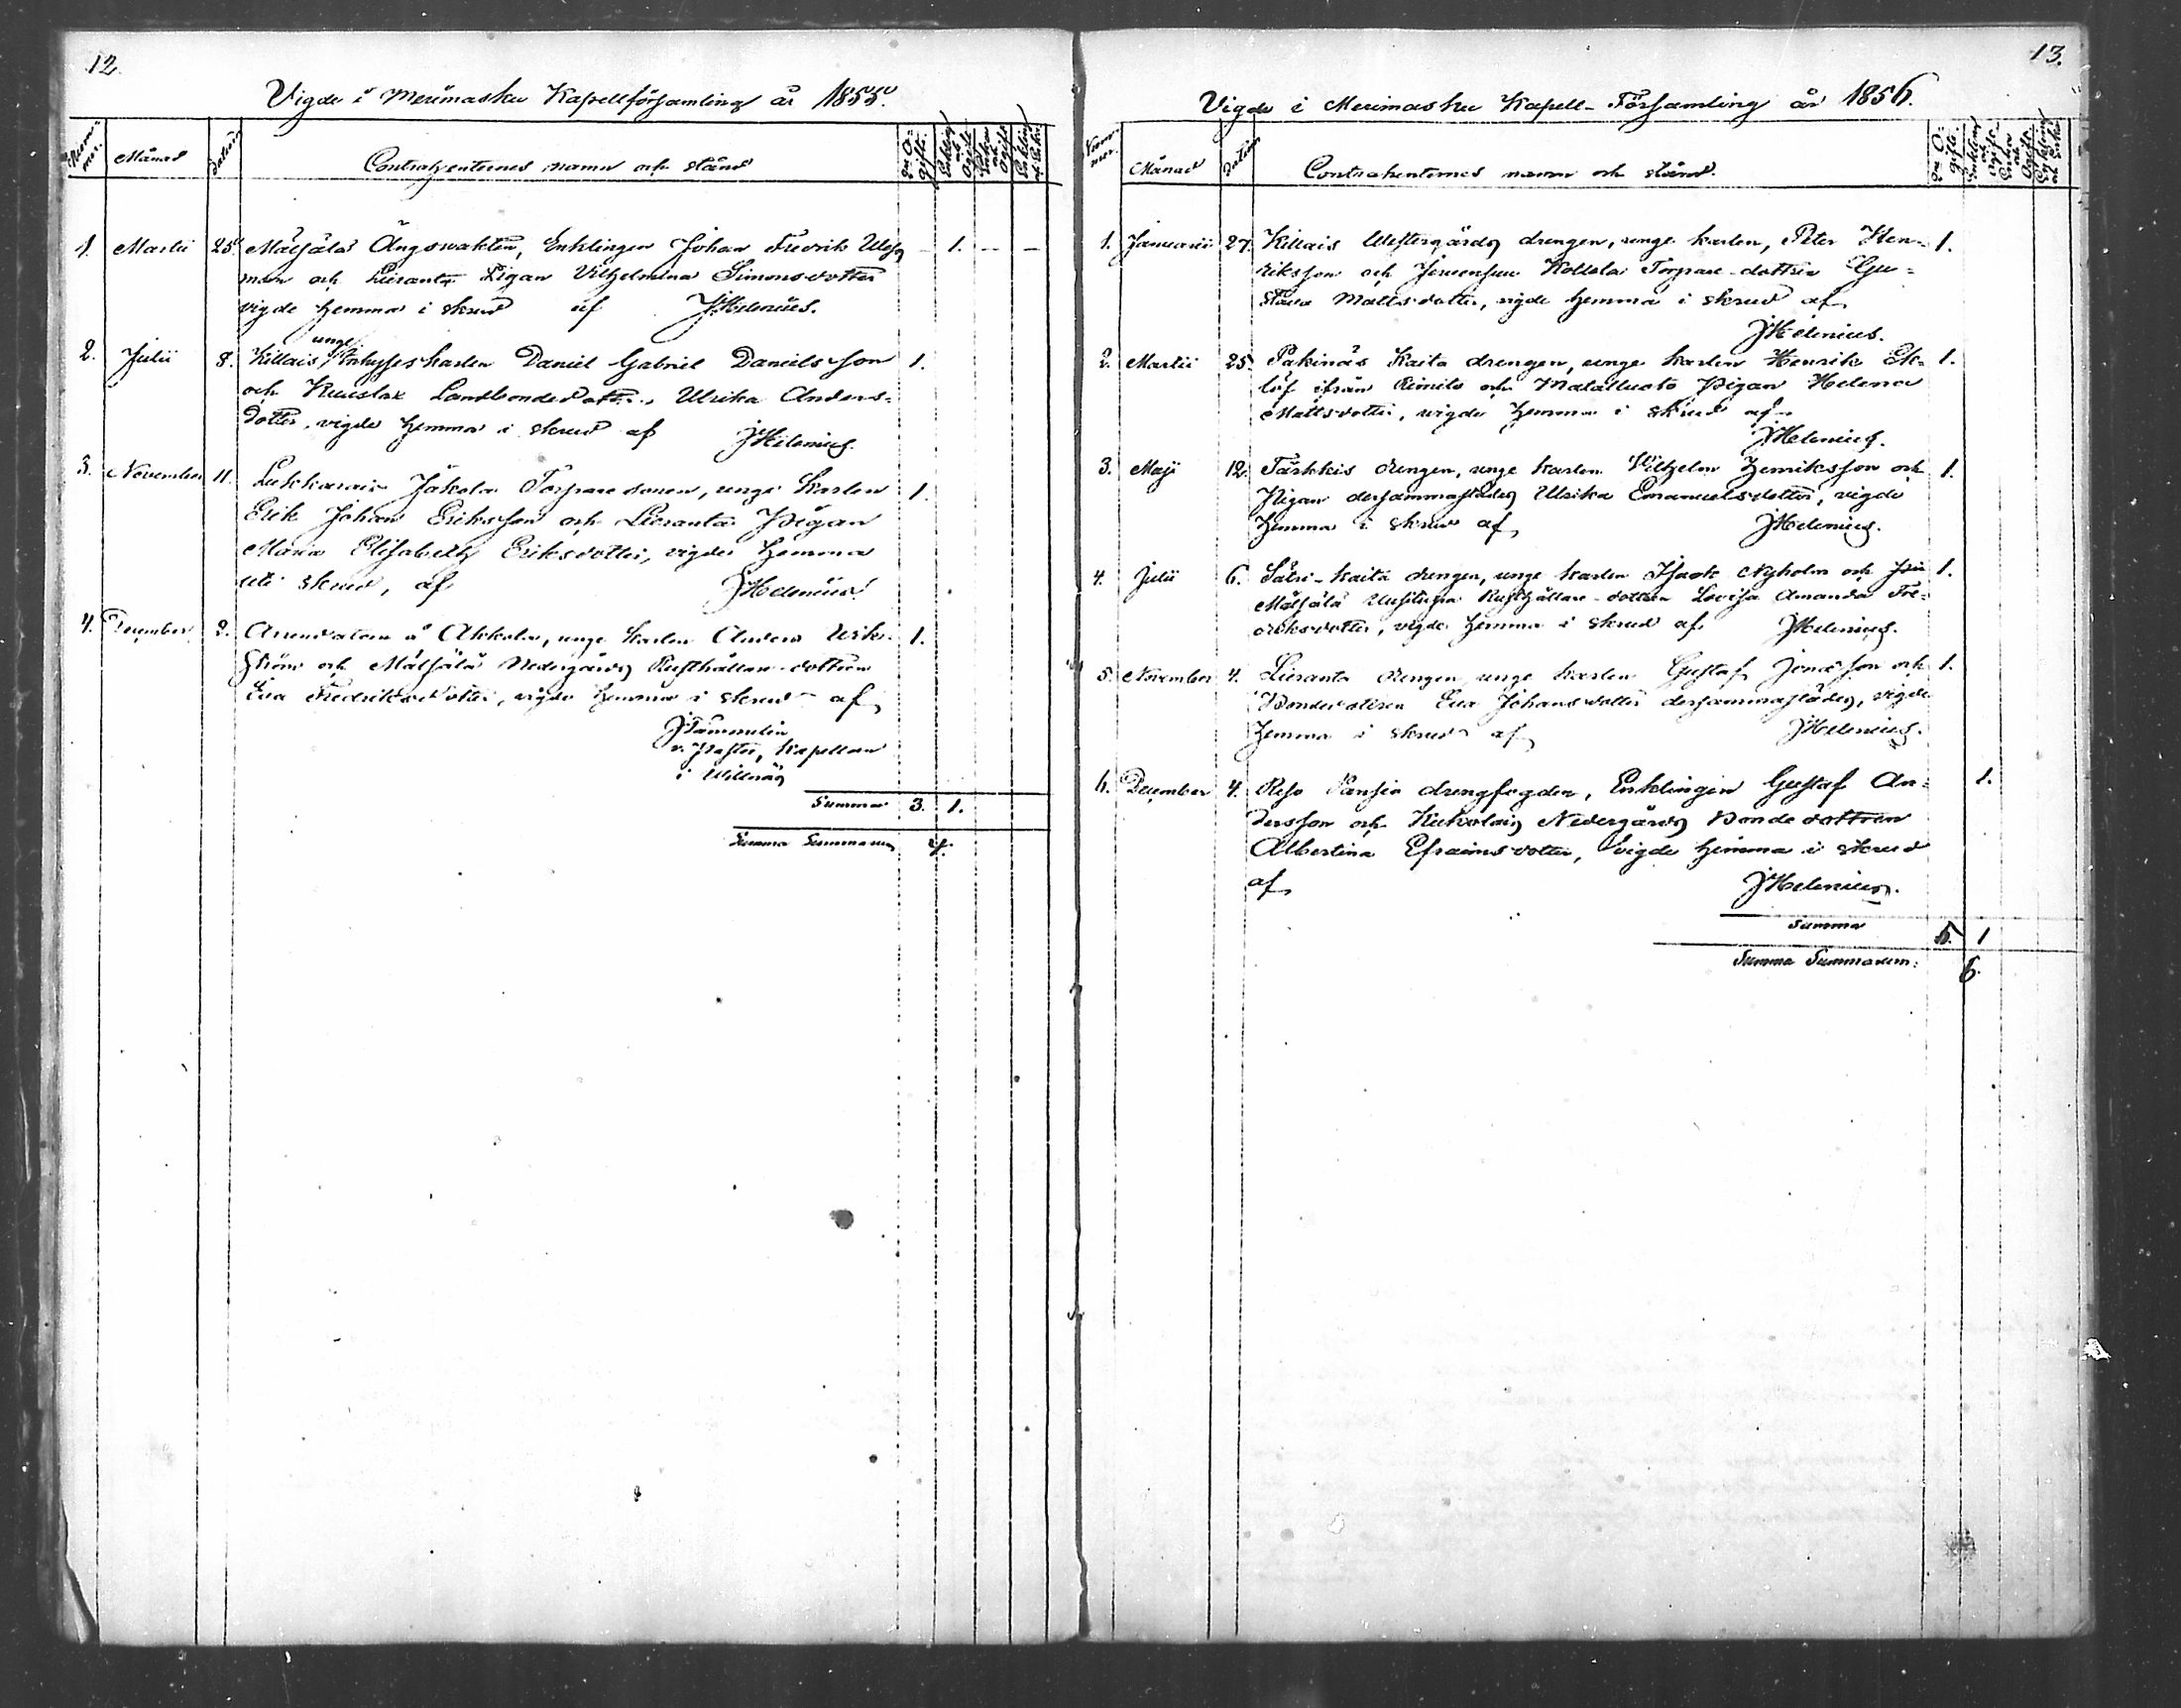 12.
Vigde i Merimasku Kapellförsamling år 1855.
Num-
mer.
Månad
Datum
Contrahenternes namn och stånd
Enkling och Ogift
Enka och Ogift
Enkling och Enka
1. Martii 25. Mälsälä Ängswakten, Enklingen Johan Fredrik - 1. - -
man och Lieranta Pigan Vilhelmina Simonsdotter
vigde hemma i skrud af JHelenius.
unge
2. Julii 8. Killais Inhyses karlen Daniel Gabriel Danielsson 1.
och Landbondedottr. Ulrika Anders-
dotter, vigde hemma i skrud af JHelenius.
3. November 11. Lukkarais Jakola Torparesonen, unge karlen 1.
Erik Johan Eriksson och Lieranta Pigan
Maria Elisabeth Eriksdotter, vigde hemma
uti skrud, af JHelenius.
4. December 2. Arrendatorn å Akkola, unge karlen Anders Wik- 1.
ström och Mälsälä Nedergårds Rusthållare-dottren
Eva Fredriksdotter, vigde hemma i skrud af
JTammelin
v. Pastor, Kapellan
i Willnäs
Summa 3. 1.
Summa Summarum 4.
13.
Vigde i Merimasku Kapell-Församling år 1856.
Num-
mer.
Månad
Datum
Contrahenternes namn och stånd.
Enkling och Ogift.
Enka och Ogift.
Enkling och Enka
1. Januarii 27. Killais Westergårds drengen, unge karlen, Peter Hen- 1.
riksson och Kollola Torpare-dottren Gu-
stava Mattsdotter, vigde hemma i skrud af
JHelenius.
2. Martii 25. Pakinais Kaita drengen, unge karlen Henrik Ek- 1.
löf ifrån Rimito och Mataluoto Pigan Helena
Mattsdotter, vigde hemma i skrud af
JHelenius.
3. Maji 12. Särkkis drengen, unge karlen Vilhelm Henriksson och 1.
Pigan dersammastädes Ulrika Emanuelsdotter, vigde
hemma i skrud af JHelenius.
4. Julii 6. Kaita drengen, unge karlen Isack Nyholm och 1.
Mälsälä Uusitupa Rusthållare-dottren Lovisa Amanda Fre-
driksdotter, vigde hemma i skrud af JHelenius.
5. November 4. Lieranta drengen, unge karlen Gustaf Jonasson och 1.
Bondedottren Eva Johansdotter dersammastädes, vigde
hemma i skrud af JHelenius.
6. December 4. Pansio drengfogden, Enklingen Gustaf An- 1.
dersson och Kukolais Nedergårds Bondedottren
Albertina Efraimsdotter, vigde hemma i skrud
af JHelenius.
Summa 5. 1
Summa Summarum: 6.